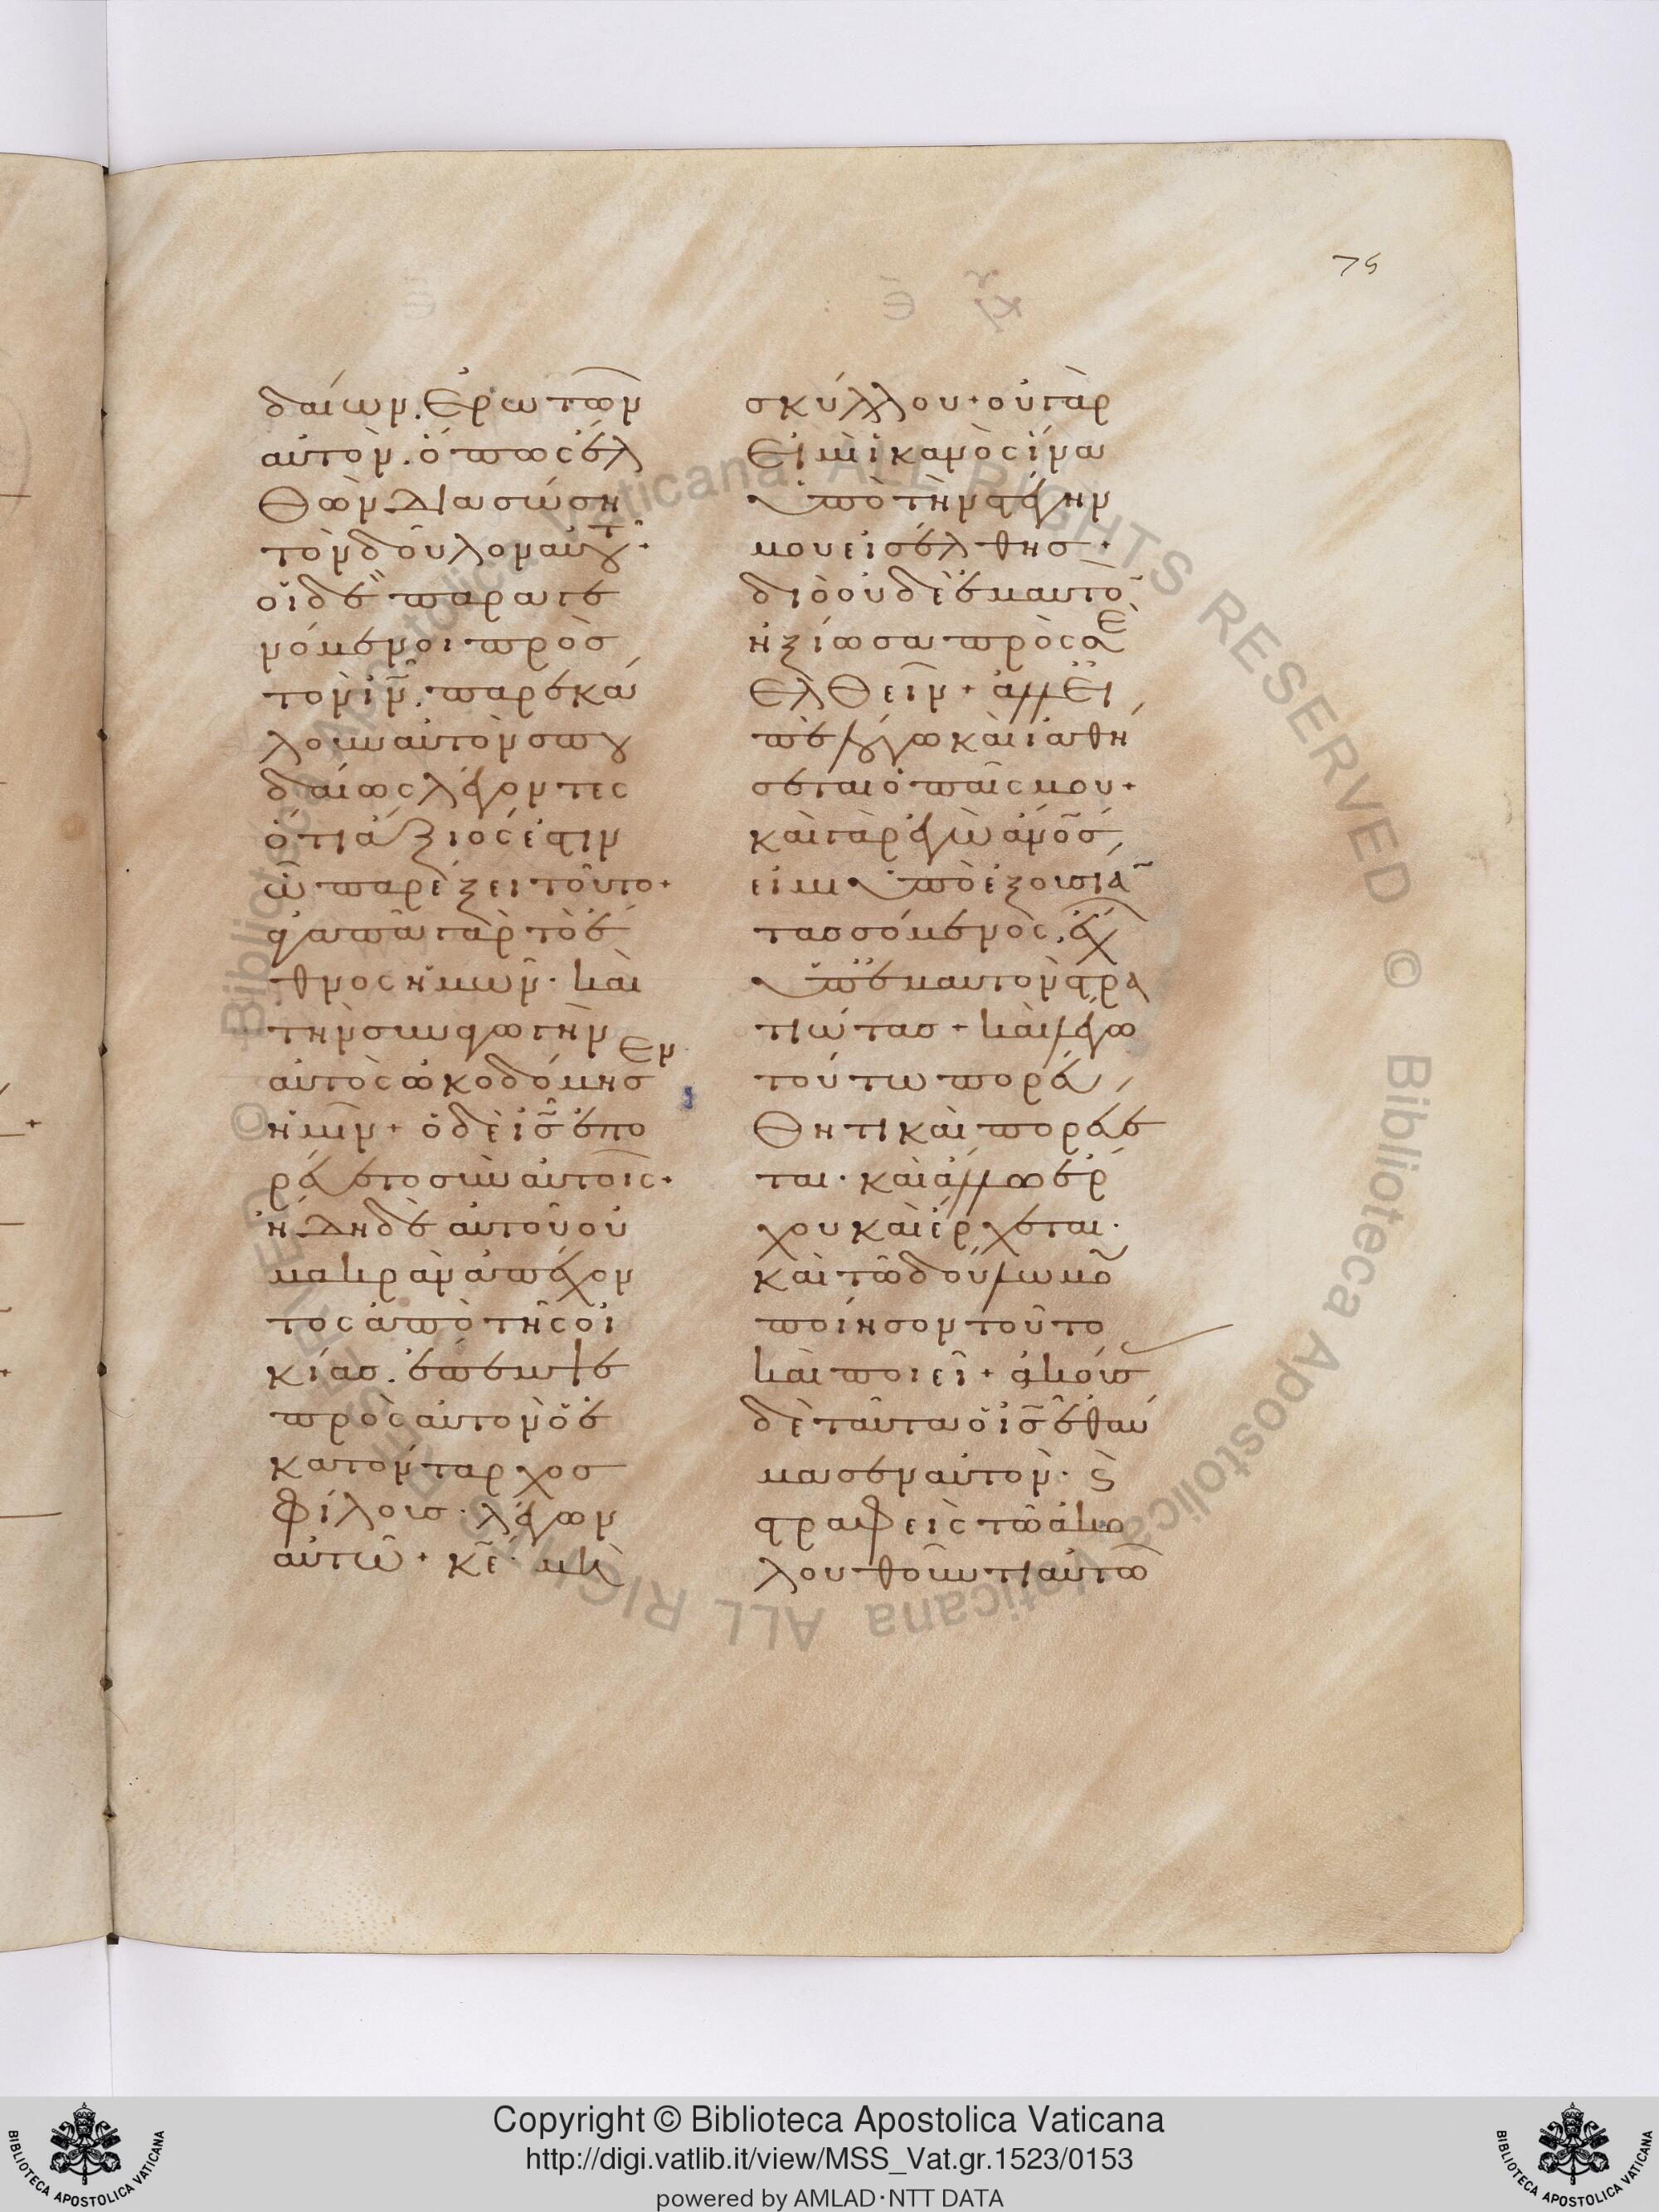 75
δαίων. ἐρωτῶν
αὐτὸν. ὅπως ἐλ
θὼν διασώση
τὸν δοῦλον αὐτοῦ·
οἱ δὲ παραγε
νόμενοι πρὸσ
τὸν ἰν̃. παρεκά
λουν αὐτὸν σπου
δαίως λέγοντες
ὅτι ἄξιος ἐστιν
ὧ παρέξει τοῦτο+
ἀγαπᾶ γὰρ τὸ ἔ
θνος ἡμῶν· καὶ
τὴν συναγωγὴν
αὐτὸς ὠκοδόμησεν
ἡμῖν+ ὁ δὲ ἰσ̃ ἐπο
ρεύετο σὺν αὐτοῖς+
ἤδη δὲ αὐτοῦ οὐ
μακρὰν ἀπέχον
τος ἀπὸ τῆς οἰ
κίασ. ἔπεμψε
πρὸς αὐτὸν ὁ ἑ
κατόνταρχοσ
φίλουσ· λέγων
αὐτῶ+ κε̃· μὴ
σκύλλου+ οὐ γὰρ
εἰμὶ ἱκανὸς ἵνα
ὑπὸ τὴν στέγην
μου εἰσέλθησ+
διὸ οὐδὲ ἐμαυτὸ̃
ἠξίωσα πρὸς σὲ
ἐλθεῖν+ ἀλλ εἰ
πὲ λόγω καὶ ἰαθή
σεται ὁ παῖς μου+
καὶ γὰρ ἐγὼ ἄνο̃σ
εἰμι ὑπὸ ἐξουσία̃
τασσόμενος, ἔχων
ὑπ ἐμαυτὸν στρα
τιώτασ+ καὶ λέγω
τούτω πορεύ
θητι καὶ πορεύε
ται· καὶ ἄλλω ἔρ
χου καὶ ἔρχεται·
καὶ τῶ δούλω μο̃
ποίησον τοῦτο
καὶ ποιεῖ+ ἀκούσ
δὲ ταῦτα ὁ ἰσ̃ ἐθαύ
μασεν αὐτὸν· ϛ
στραφεὶς τῶ ἀκο
λουθοῦντι αὐτῶ
Copyright © Biblioteca Apostolica Vaticana
http://digi.vatlib.it/view/MSS_Vat.gr.1523/0153
powered by AMLAD·NTT DATA
BIBLIOTECA APOSTOLICA VATICANA
BIBLIOTECA APOSTOLICA VATICANA
© Biblioteca Apostolica Vaticana ALL RIGHTS RESERVED
© Biblioteca Apostolica Vaticana ALL RIGHTS RESERVED